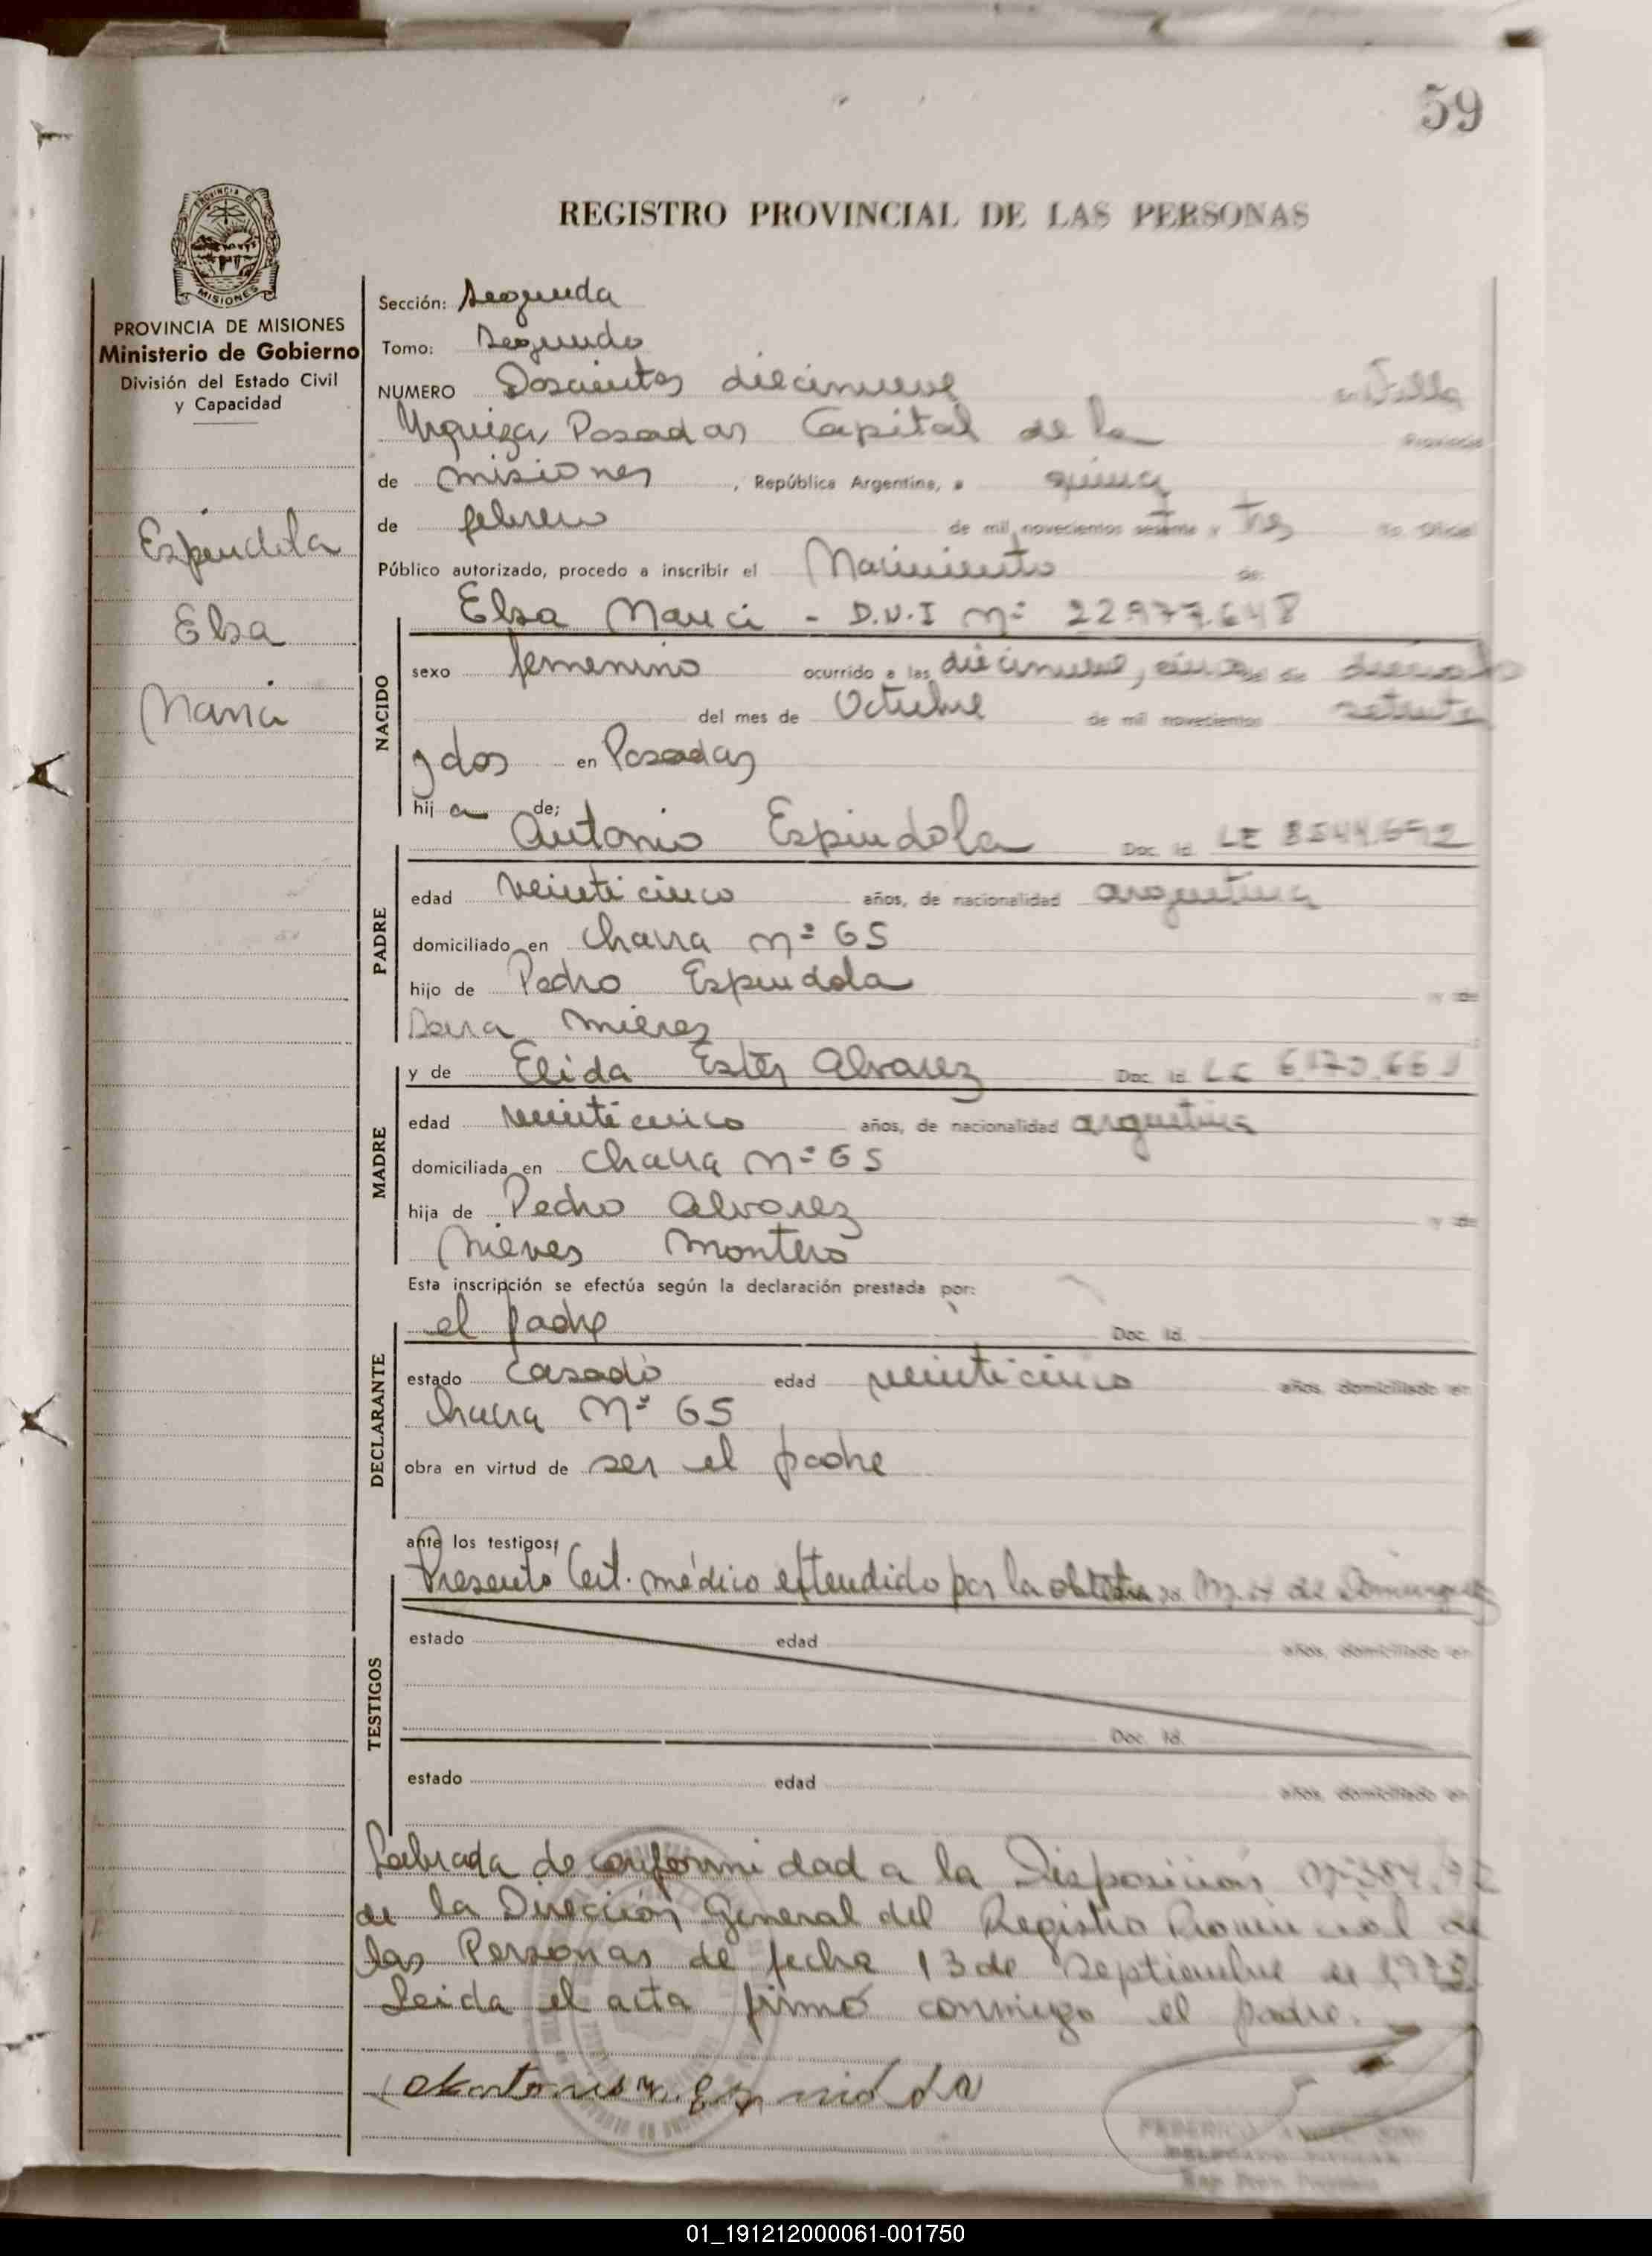 59
PROVINCIA DE
MISIONES
REGISTRO PROVINCIAL DE LAS PERSONAS
PROVINCIA DE MISIONES
Ministerio de Gobierno
División del Estado Civil
y Capacidad
Espíndola
Elsa
Maria
Sección: Segunda
Tomo: Segundo
NUMERO Doscientos diecinueve en Villa
Urquiza, Posadas Capital de la Provincia
de misiones, República Argentina, a quince
de febrero de mil novecientos setenta y tres yo, Oficial
Público autorizado, procedo a inscribir el Nacimiento de:
Elsa Maria - D.N.I Nº 22.977.648
NACIDO
sexo femenino ocurrido a las diecinueve, cinco del dia dieciocho
del mes de Octubre de mil novecientos setenta
y dos en Posadas
hija de;
Antonio Espindola Doc. Id. LE 8544.692
PADRE
edad veinticinco años, de nacionalidad argentina
domiciliado en chacra nº 65
hijo de Pedro Espindola y de
mieres
y de Elida Ester Alvarez Doc. Id. LC
MADRE
edad veinticinco años, de nacionalidad argentina
domiciliada en chacra nº 65
hija de Pedro Alvarez y de
Nieves Montero
Esta inscripción se efectúa según la declaración prestada por:
el padre Doc. Id.
DECLARANTE
estado casado edad veinticinco años, domiciliado en
chacra Nº 65
obra en virtud de ser el padre
ante los testigos;
Presentó Cert. médico extendido por la obstetra de Dominguez
TESTIGOS
estado edad años, domiciliado en
Doc. Id.
estado edad años, domiciliado en
Labrada de conformidad a la Disposición
de la Dirección General del Registro Provincial de
las Personas de fecha 13 de Septiembre de 1972.
Leida el acta firmó conmigo el padre.
FEDERICO
01_191212000061-001750